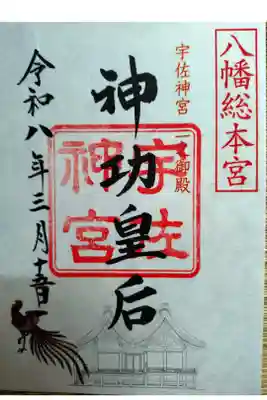 八幡総本宮
宇佐神宮 御殿
神功皇后
宇佐
神宮
令和八年三月